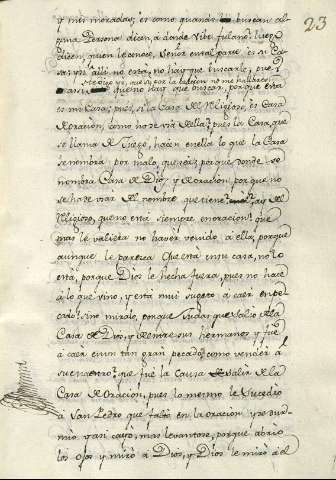 23
y mis moradas; es como quando buscan al
guna Persona dicen, a donde Vibe fulano? luego
dicen, quien le conoce, Señor en tal parte es su Ca
sa: si alli no esta, no hay que buscarle, pues
no hay que buscar, porque esta
es mi Casa; pues si la Casa del Religioso, es Casa
de oracion, como no se vá á ella? pues la Casa, que
se llama de Juego, hacen en ella lo que la Casa
se nombra por malo, que sea; porque donde se
nombra Casa de Dios, y de oracion, porque no
se ha de usar del nombre, que tiene? del
Religioso, que no está siempre en oracion! que
mas le valiera no haver venido á ella, porque
aunque le paresca que está en su casa, no lo
está, porque Dios le hecha fuera, pues no hace
á lo que vino, y está mui sugeto a caer en pe
cado: sino miralo, porque Judas que salio de la
Casa de Dios, y de entre sus hermanos, y fue
á caer en un tan gran pecado, como vender á
su maestro? que fue la causa de salir de la
Casa de oracion, pues lo mesmo le sucedio
á San Pedro que faltó en la oracion y se dur
mio y an cayó, mas levantose, porque abrio
los ojos y miró á Dios, y Dios le miró á el